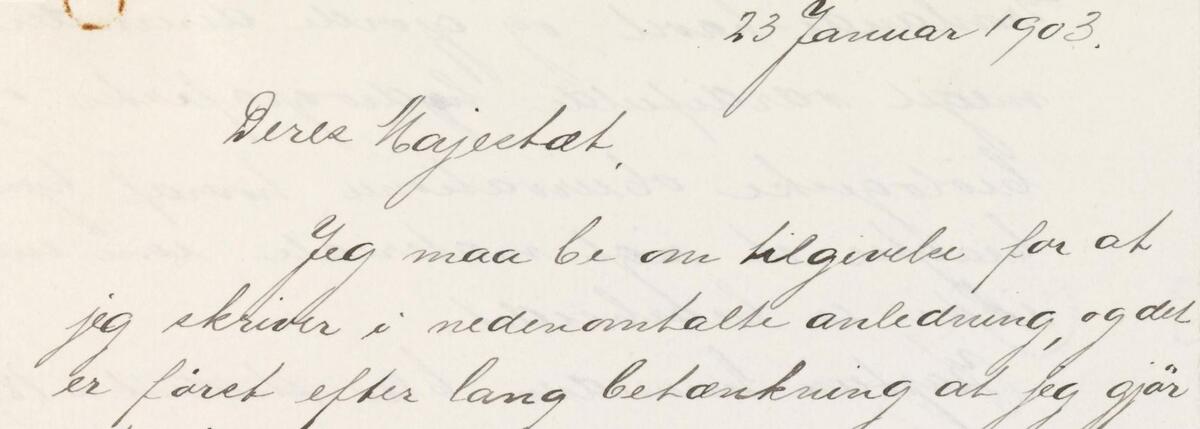 23 Januar 1903.
Deres Majestæt.
Jeg maa be om tilgivelse for at
jeg skriver i nedenomtalte anledning, og det
er först efter lang betænkning at jeg gjör